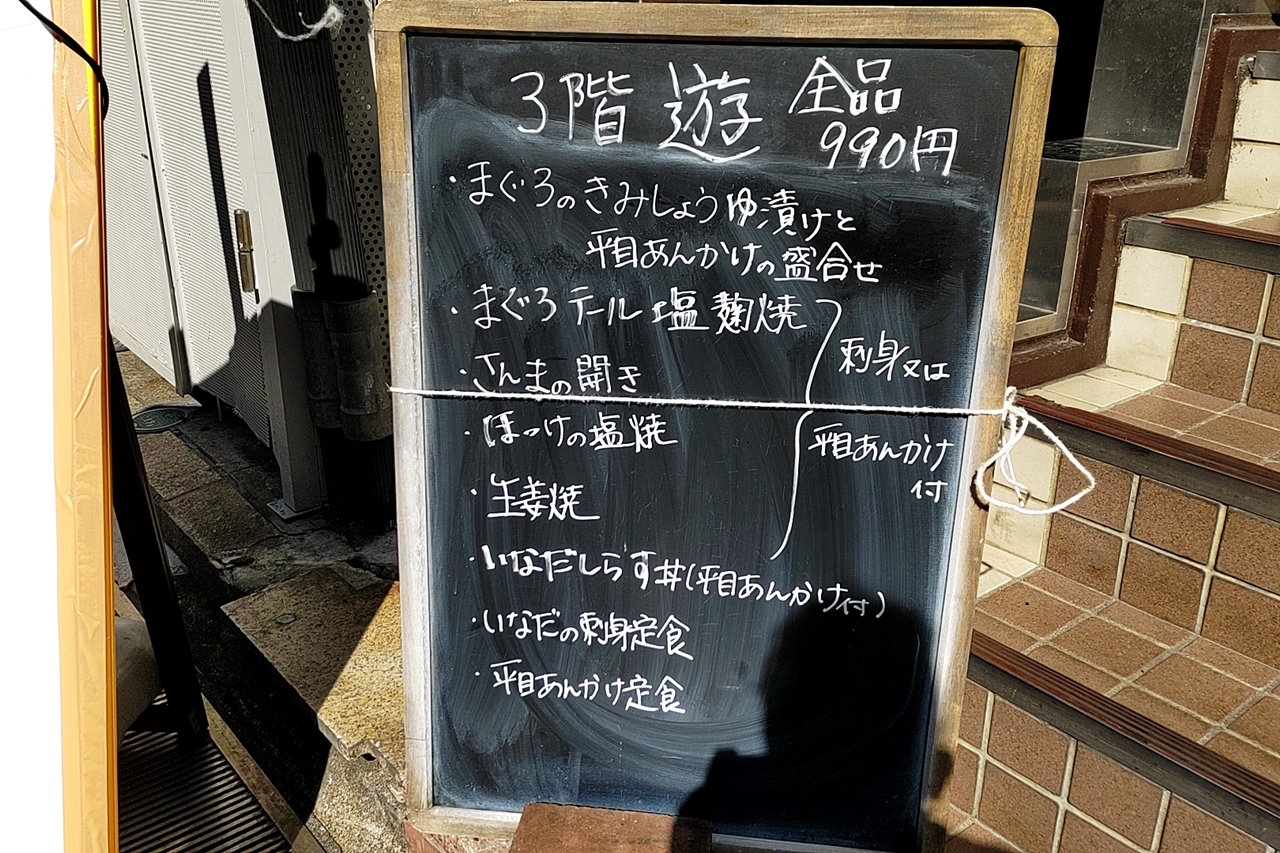 3階 遊 全品
990円
・まぐろのきみしょうゆ漬けと
平目あんかけの盛合せ
・まぐろテール塩麹焼
・さんまの開き
刺身又は
・ほっけの塩焼
平目あんかけ
付
・生姜焼
・いなだしらす丼(平目あんかけ付)
・いなだの刺身定食
・平目あんかけ定食